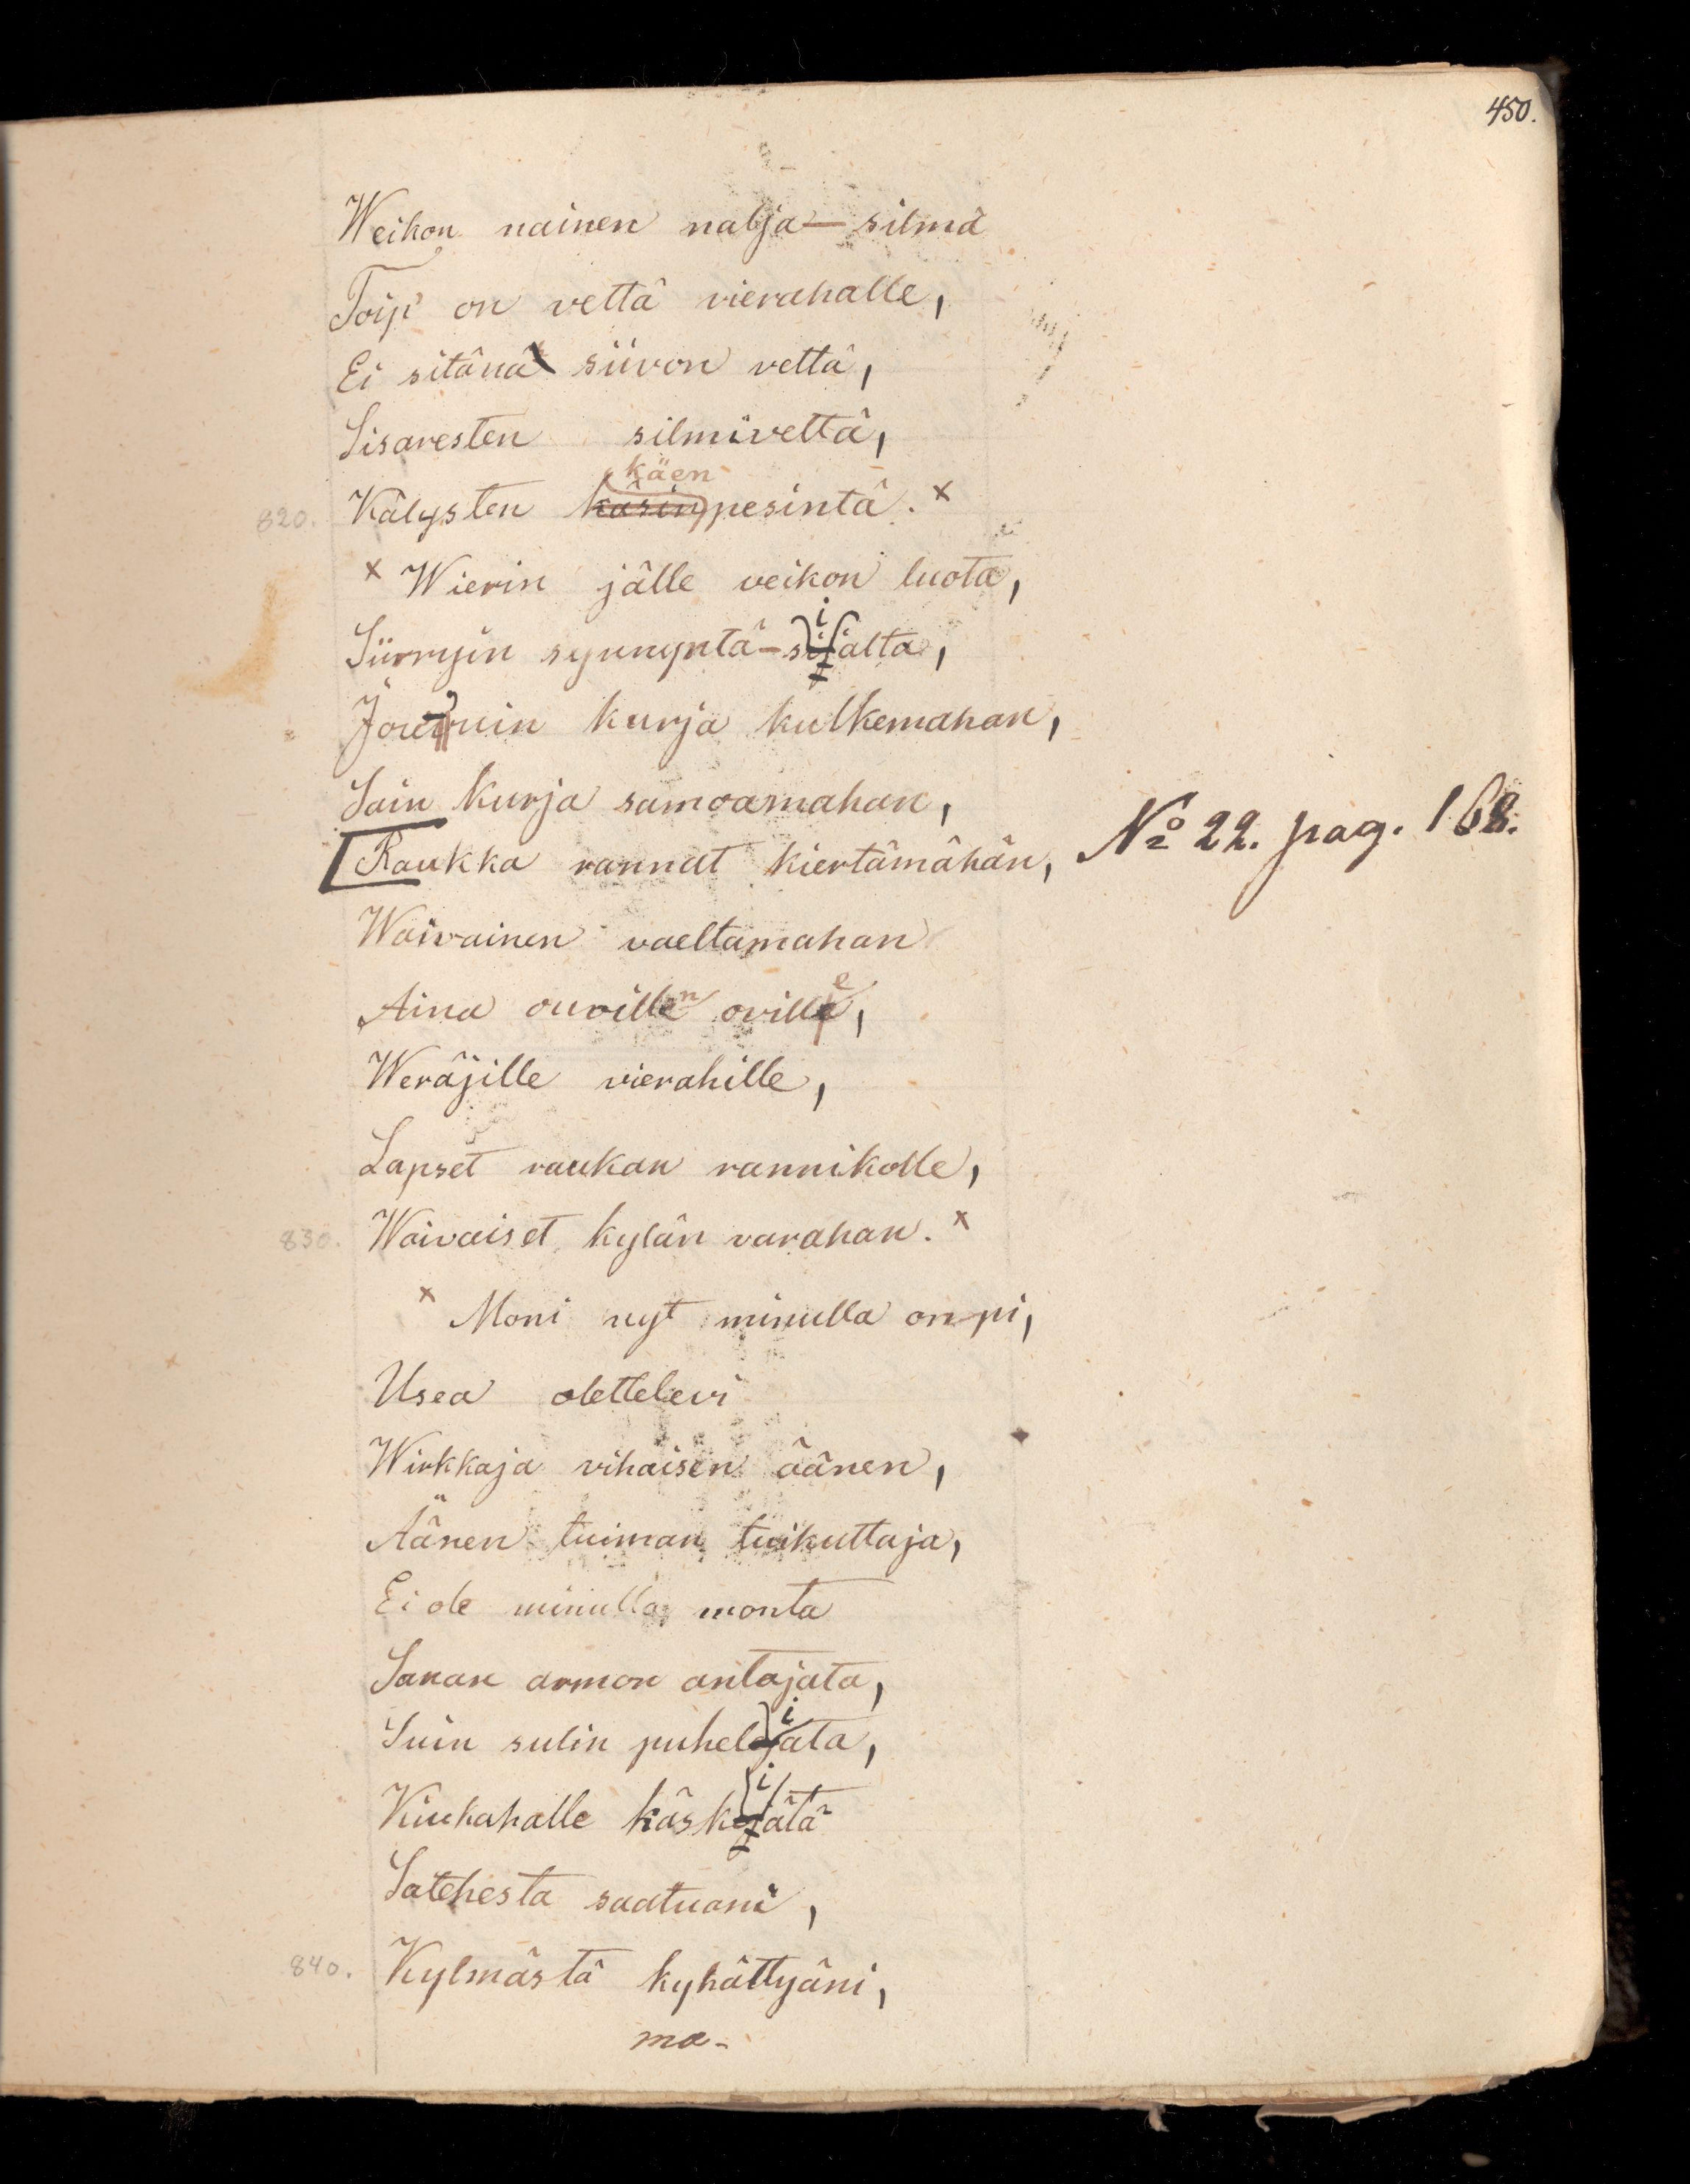 450.
Weikon nainen nalja-silmä
Toip' on vettä vierahalle,
Ei sitänä siivon vettä,
Sisaresten silmivettä,
käen
820. Kälysten käsin pesintä. x
x Wierin jälle veikon luota,
i
Siirryin synnyntä-sijalta,
Jouruin kurja kulkemahan,
Sain kurja samoamahan,
Raukka rannat kiertämähän, No 22. pag. 168.
Waivainen vaeltamahan
Aina ouvillen oville,
Weräjille vierahille,
Lapset raukan rannikolle,
830. Waivaiset kylän varahan. x
x Moni nyt minulla onpi,
Usea olettelevi
Wirkkaja vihaisen äänen,
Äänen tuiman tuikuttaja,
Ei ole minulla monta
Sanan armon antajata,
i
Suin sulin puhelijata,
i
Kiukahalle käskijätä
Satehesta saatuani,
840. Kylmästä kyhättyäni,
ma-